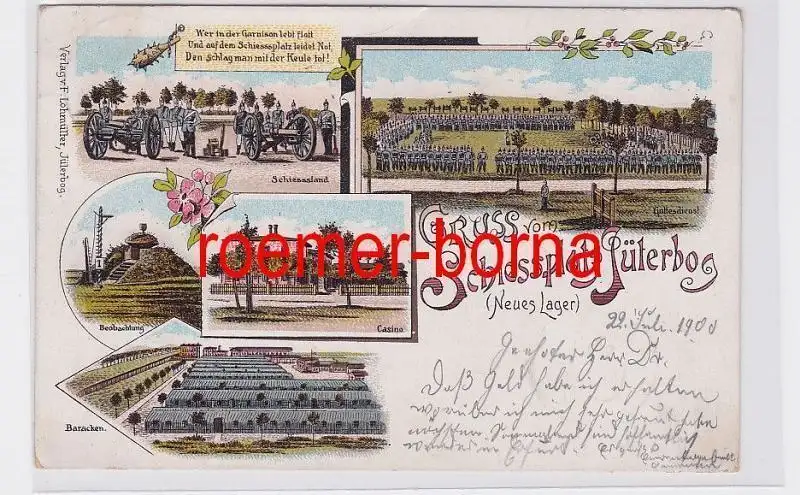 Wer in der Garnison lebt flott
Und auf dem Schiessplatz leidet Not,
Den schlag man mit der Keule tot!
Verlag v. F. Lohmüller, Jüterbog.
Schiessstand
Gottesdienst
Gruss vom
Schiessplatz Jüterbog
(Neues Lager)
roemer-borna
Beobachtung
Casino
Baracken.
22. Juli. 1900
Geehrter Herr Dr.
Daß Geld habe ich erhalten
worüber ich mich sehr gefreut habe